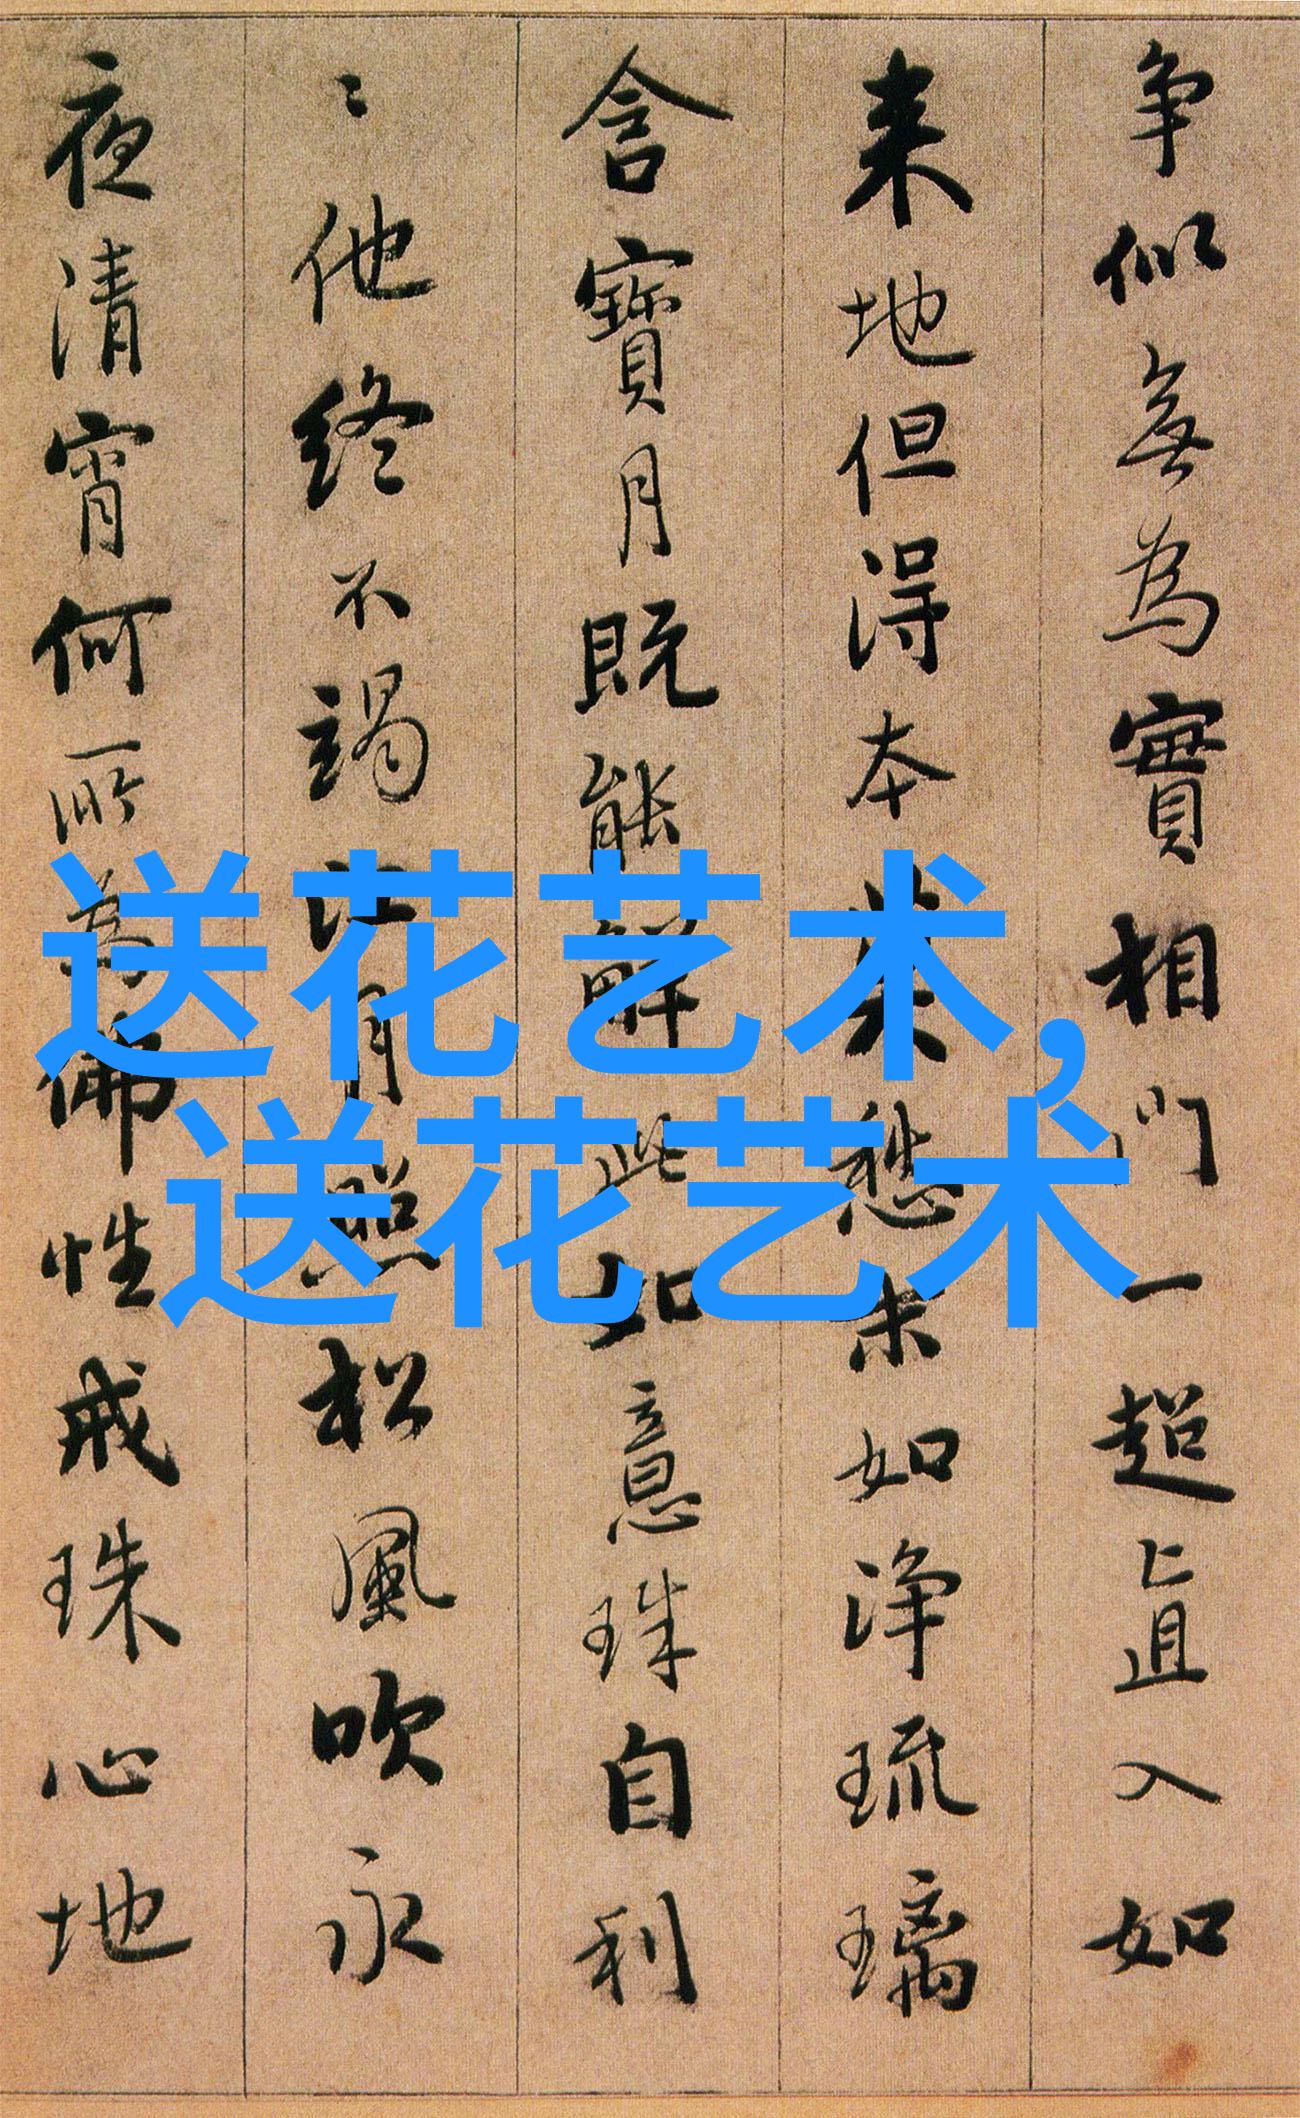 争似無為實相門一超直入如
来地但得本莫愁末如淨琉璃
含寶月既能解此如意珠自利
〻他終不竭江月照松風吹永
夜清宵何所為佛性戒珠心地
送花艺术,
送花艺术